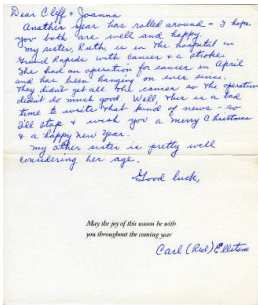 Dear Cliff & Joanna
Another year has rolled around - I hope
you both are well and happy.
my sister Ruth, is in the hospital in
Grand Rapids with cancer & a stroke.
She had an operation for cancer in April
and has been hanging on ever since.
They didn't get all the cancer so the operation
didn't do much good. Well this is a bad
time to write that kind of news - so
I'll stop & wish you a merry Christmas
& a happy new year.
my other sister is pretty well
considering her age.
Good luck,
May the joy of this season be with
you throughout the coming year
Carl (Red) Ellstem